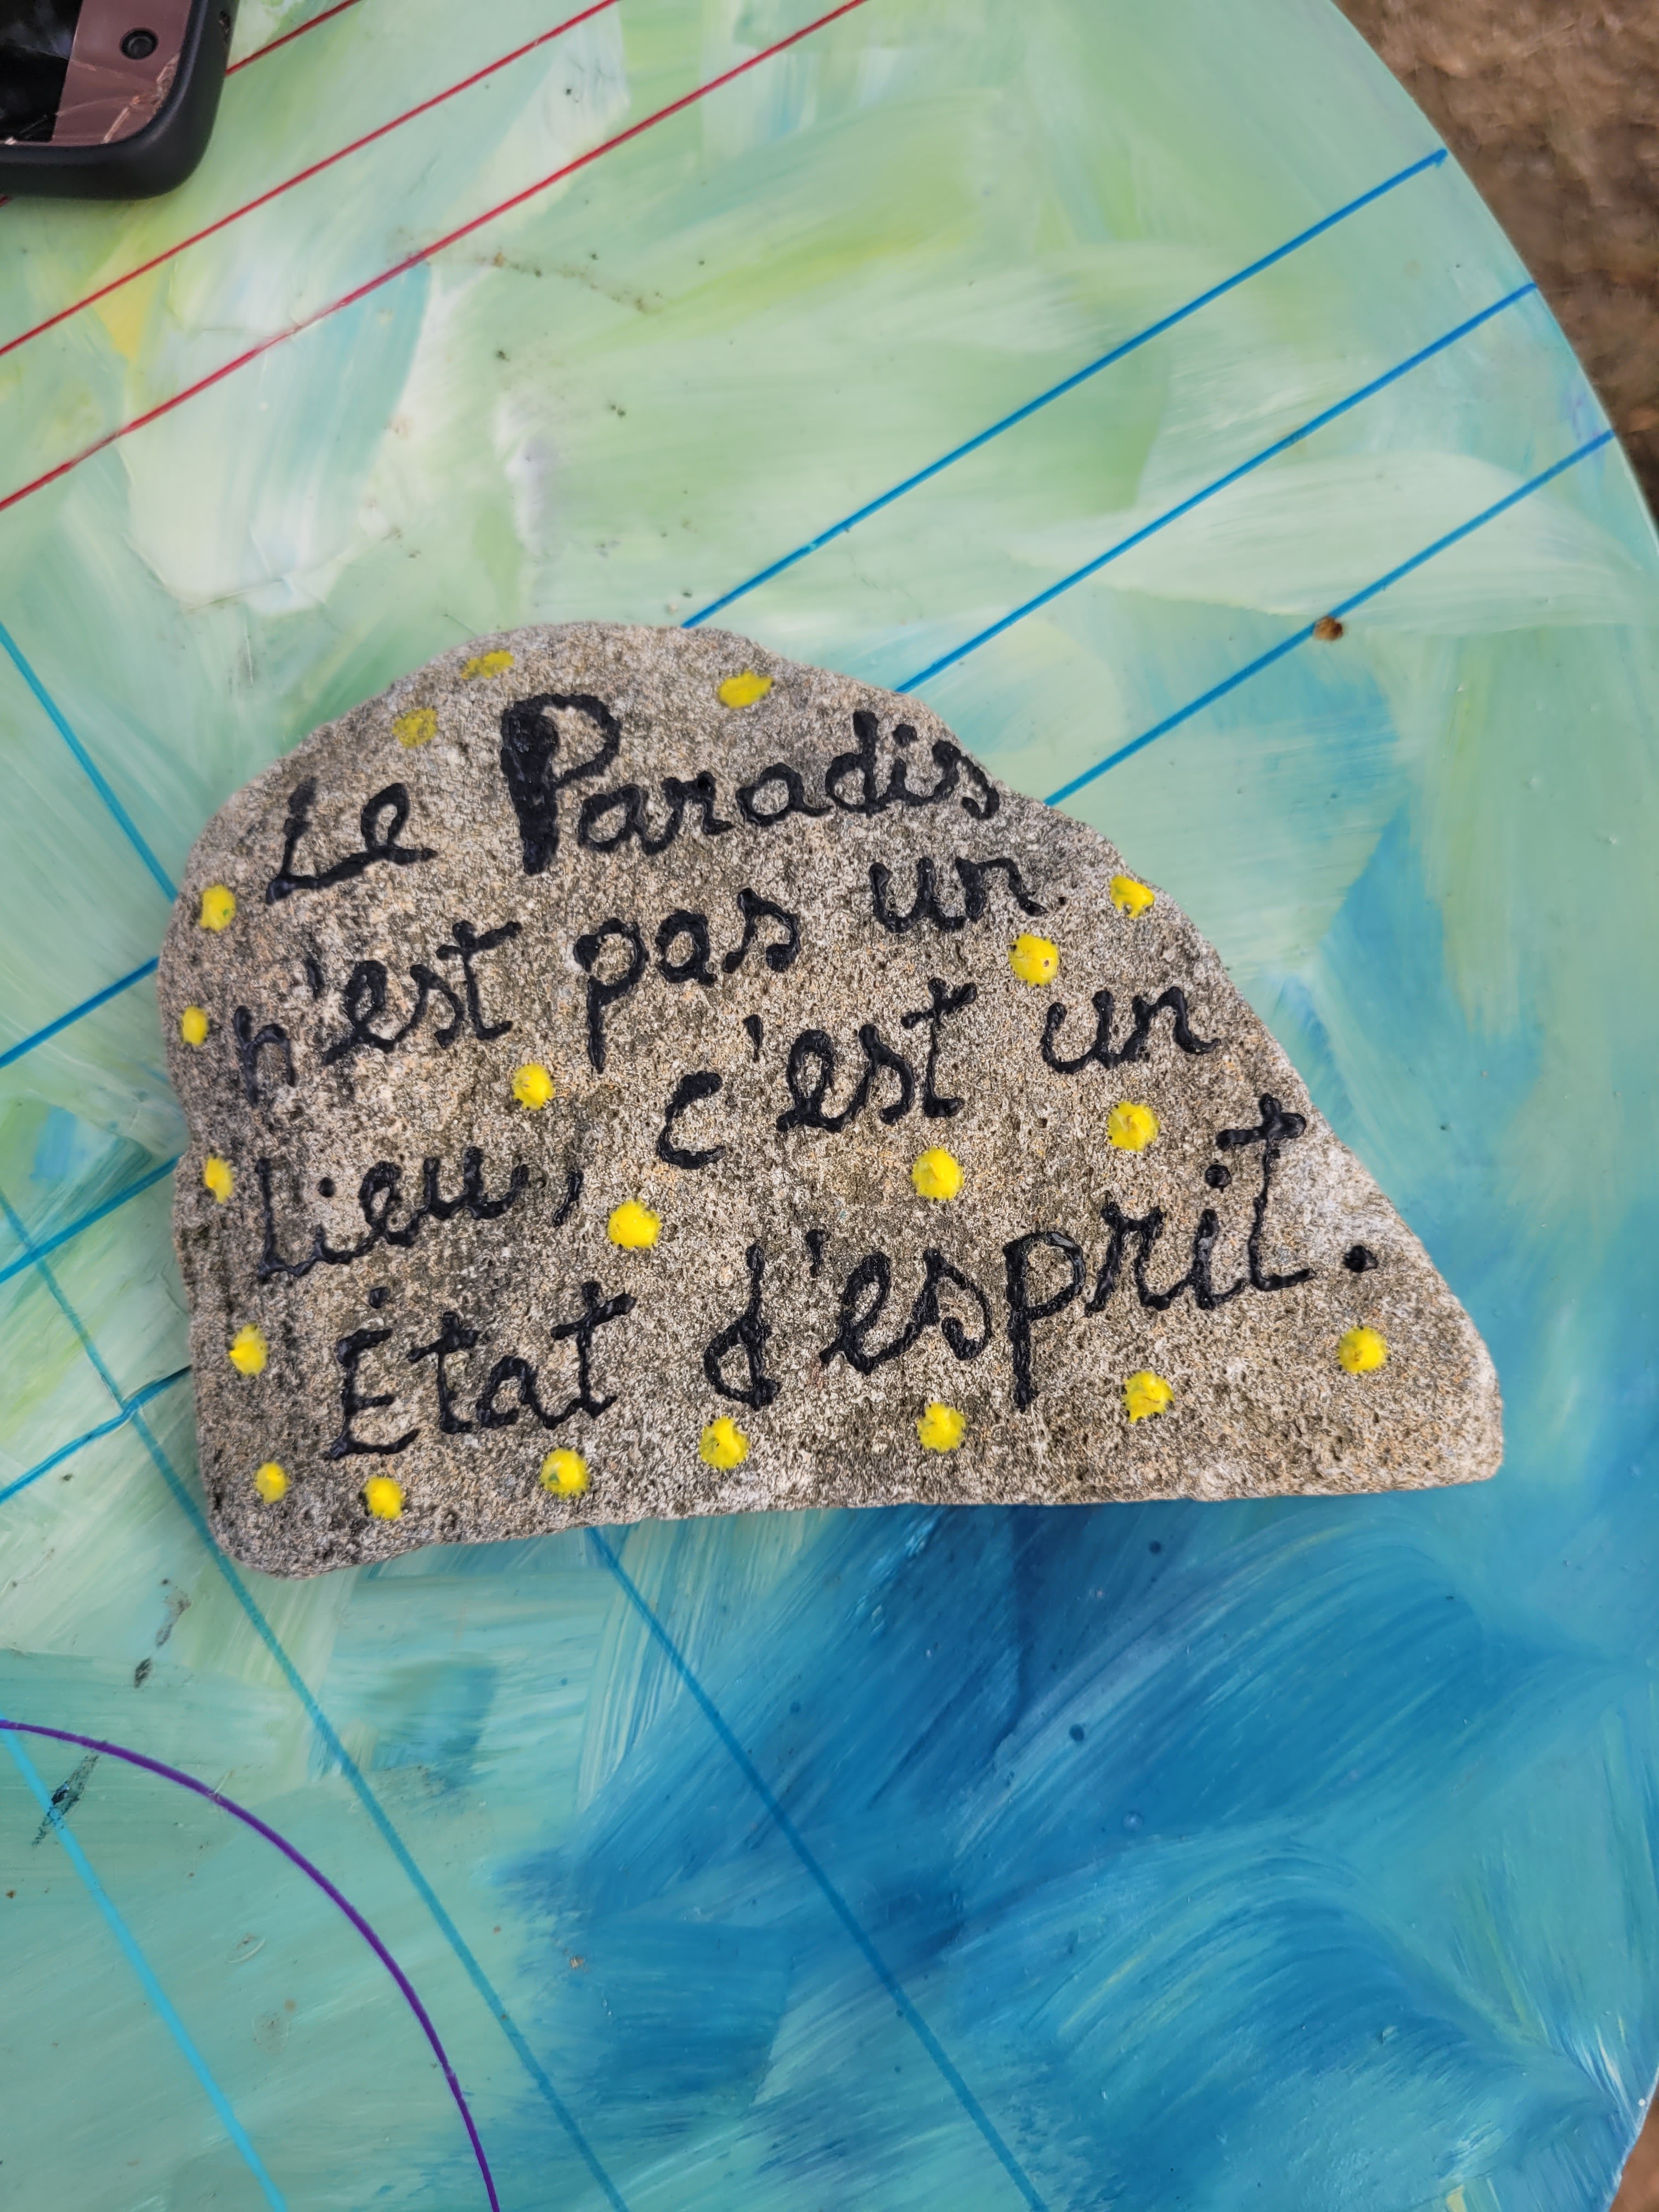 Le Paradis
n'est pas un
Lieu, c'est un
État d'esprit.